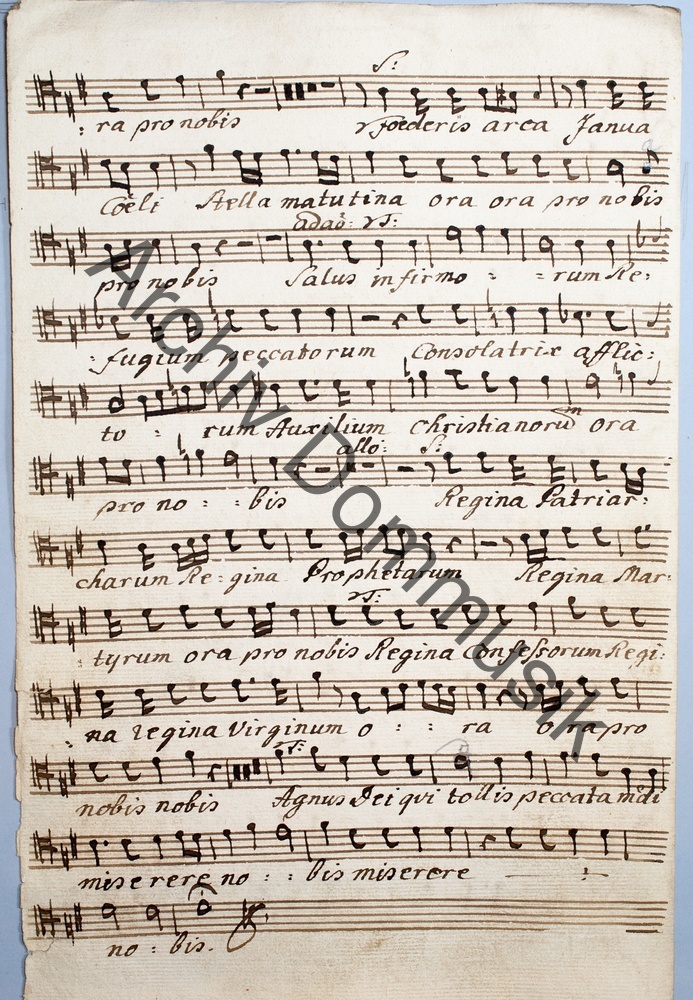 S:
: ra pro nobis Foederis arca Janua
Coeli Stella matutina ora ora pro nobis
adag: T:
pro nobis Salus infirmo : : rum Re:
: fugium peccatorum Consolatrix afflic:
to : rum Auxilium Christianorum ora
allo: S:
pro no : : bis Regina Patriar:
charum Re : gina Prophetarum Regina Mar:
T:
: tyrum ora pro nobis Regina Confessorum Regi:
: na regina Virginum o : : ra ora pro
T:
nobis nobis Agnus Dei qui tollis peccata mudi
miserere no : : bis miserere
no : bis.
Archiv Dommusik